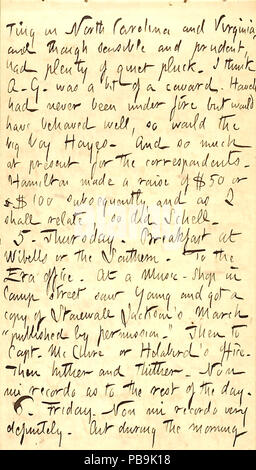 ting in North Carolina and Virginia
and though sensible and prudent,
had plenty of quiet pluck. I think
A. G. was a bit of a coward.
had never been under fire but would
have behaved well, so would the
big boy Hayes. And so much
at present for the correspondents.
Hamilton made a raise of $50 or
$100 subsequently, and as I
shall relate, so did Schell.
5. Thursday. Breakfast at
Wibells or the Southern. To the
Era office. At a Music-shop in
Camp street saw Young and got a
copy of Stonewall Jackson's March
"published by permission." Then to
Capt. McClure or Holabird's office.
Then hither and thither. Non
mi recordo as to the rest of the day.
6. Friday. Non mi recordo very
definitely. Out during the morning
alamy
PB9K18